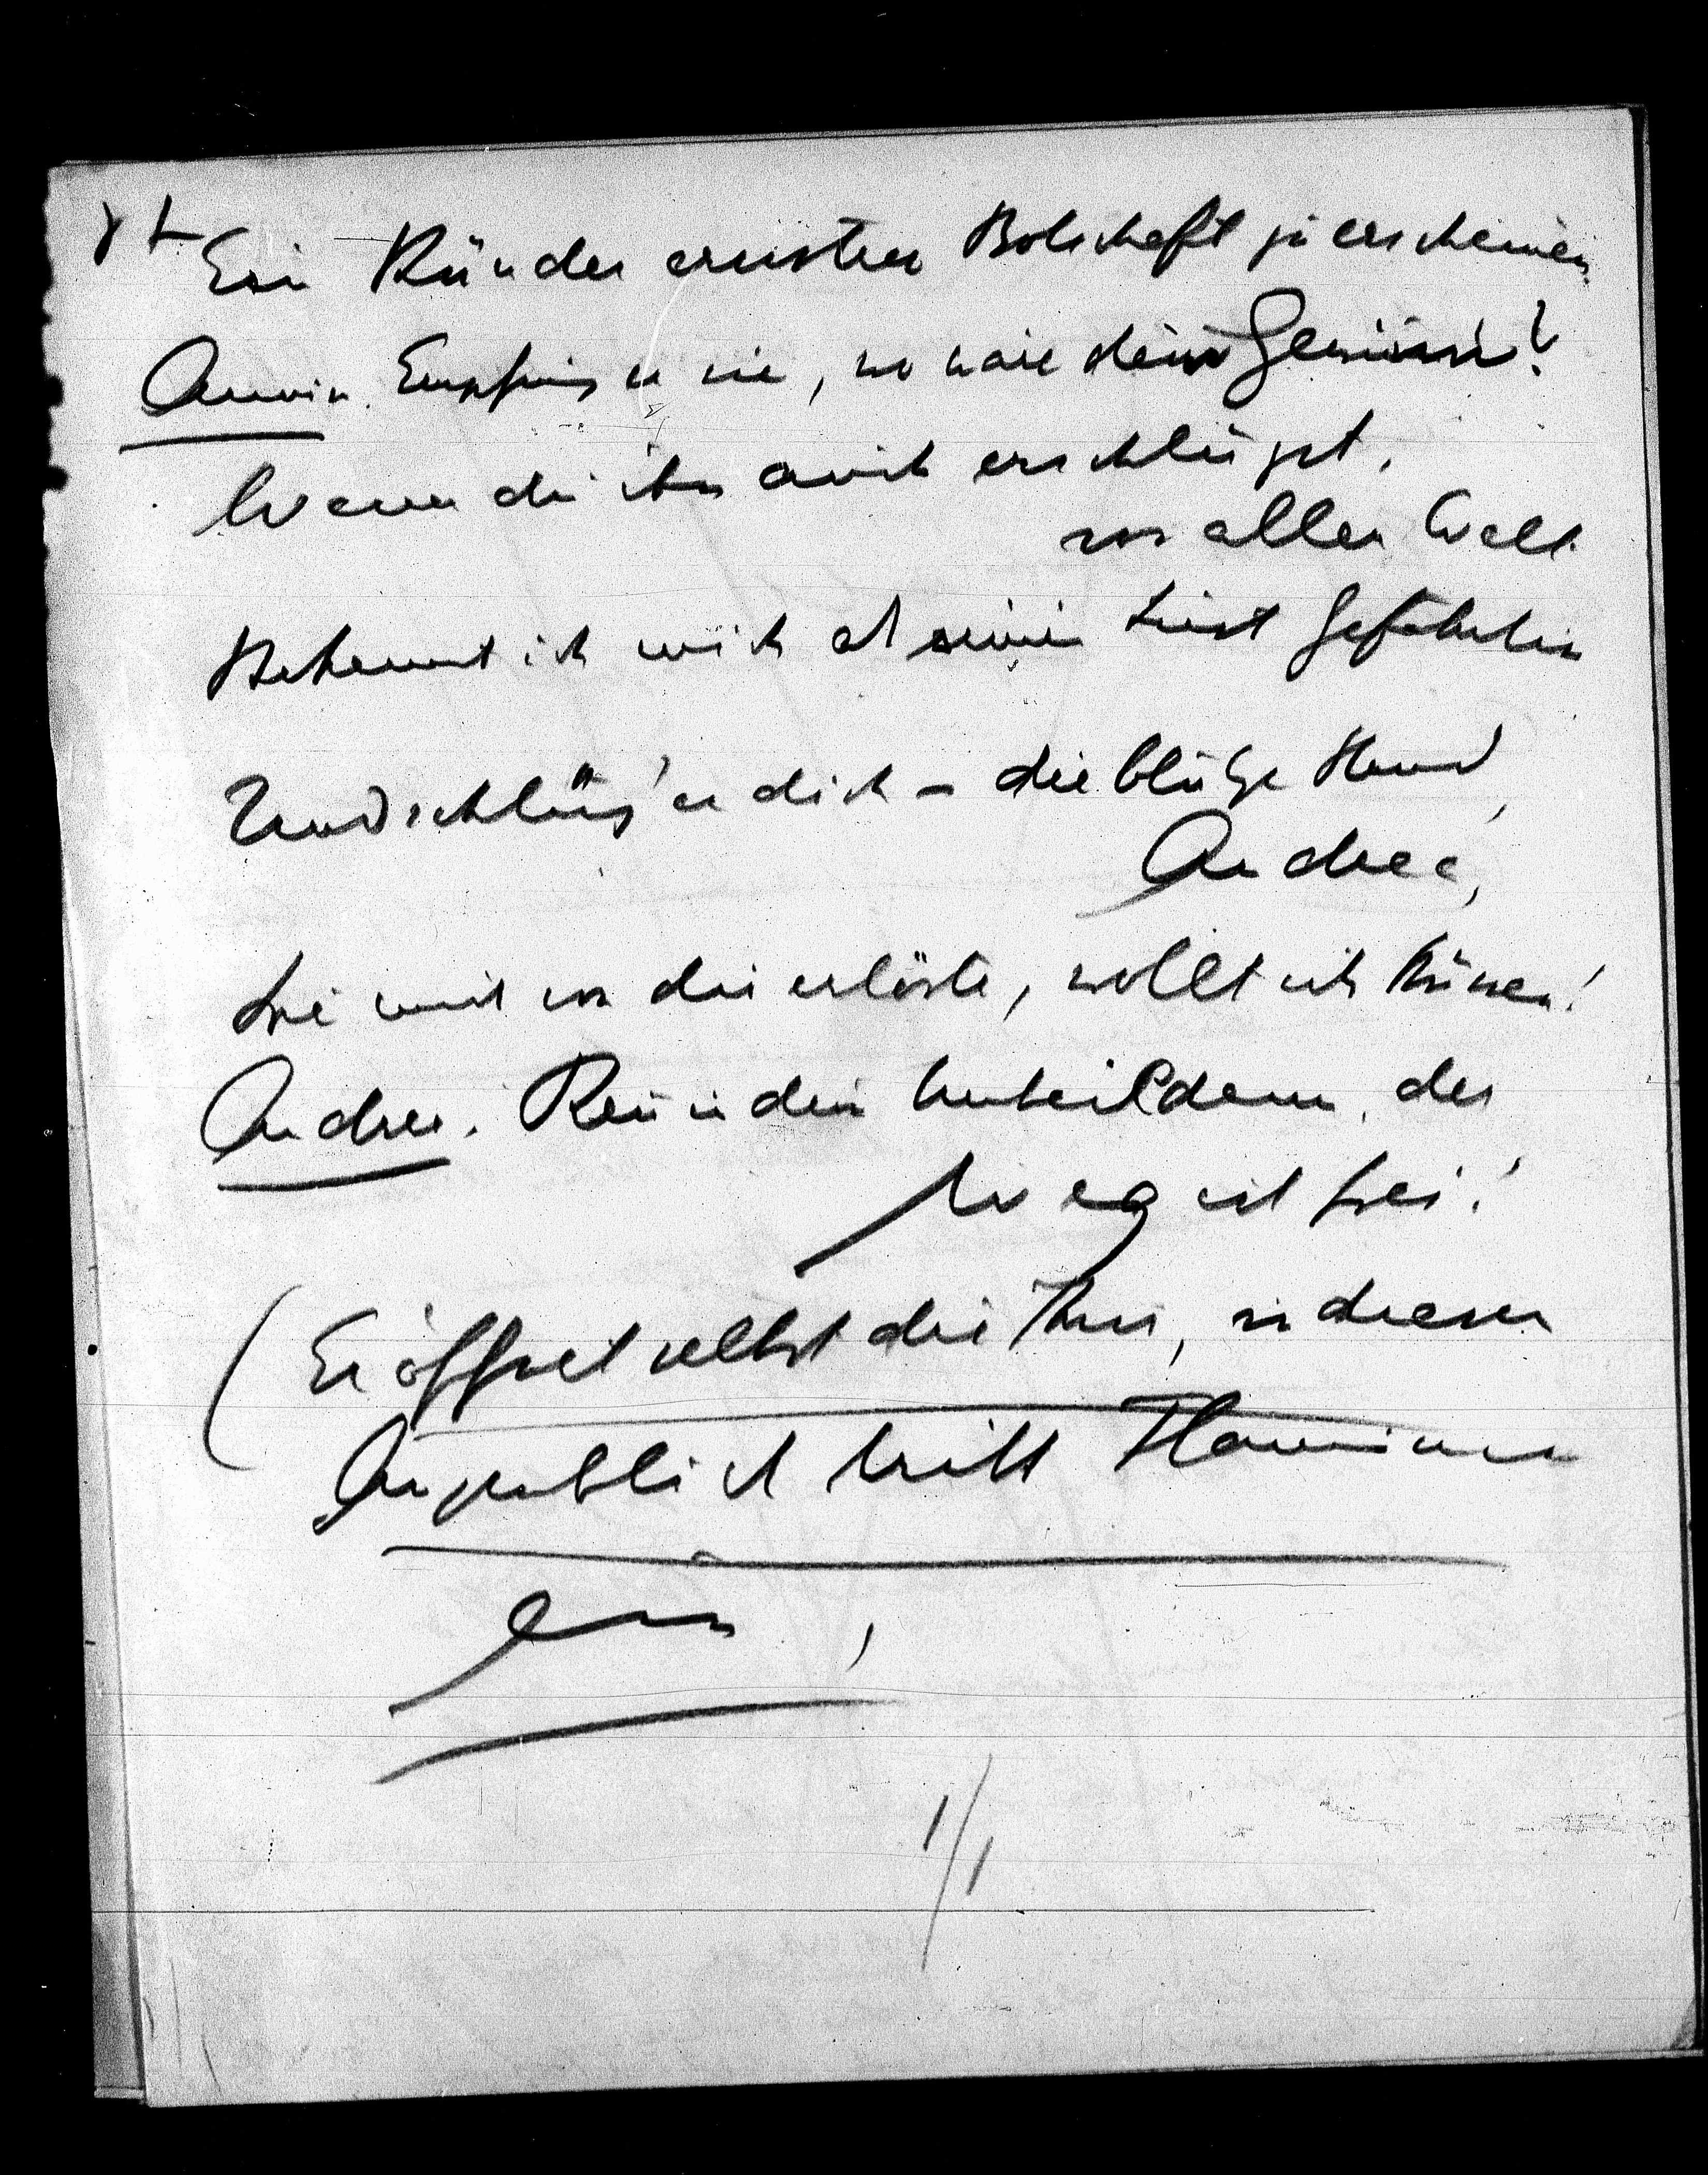 Ein Künder ernster Botschaft zu erscheinen.
Anina. Empfing er sie, wo wäre dein Gewinn?
Wenn du ihn auch erschlügst,
vor aller Welt
Bekennt ich mich als seine Lustgefährtin
Und schlüg' er dich – die blutge Hand,
Andrea,
die mich von dir erlöste, wollt ich küssen!
Andrea. Renn in dein Unheil denn, der
Weg ist frei!
(Er öffnet selbst die Thür, in diesem
Augenblick tritt Flaminio
ein,
1/1